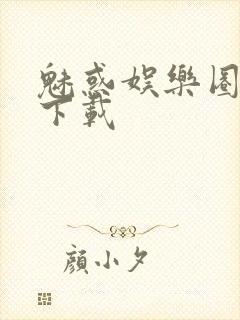 魅惑娛樂圈
下載
顏小夕